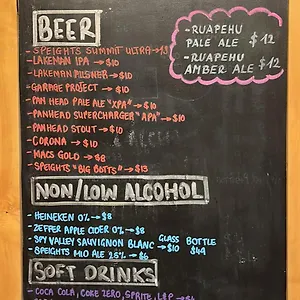 BEER
- SPEIGHTS SUMMIT ULTRA →
- LAKEMAN IPA → $10
- LAKEMAN PILSNER → $10
- GARAGE PROJECT → $10
- PAN HEAD PALE ALE "XPA" → $10
- PANHEAD SUPERCHARGER "APA" → $10
- PANHEAD STOUT → $10
- CORONA → $10
- MACS GOLD → $8
- SPEIGHTS "BIG BOTTS" → $13
- RUAPEHU
PALE ALE $12
- RUAPEHU
AMBER ALE $12
NON/LOW ALCOHOL
- HEINEKEN 0% → $8
- ZEFFER APPLE CIDER 0% → $8
GLASS BOTTLE
- SPY VALLEY SAUVIGNON BLANC → $10 $49
- SPEIGHTS MID ALE 2.5% → $6
SOFT DRINKS
- COCA COLA, COKE ZERO, SPRITE, L&P →